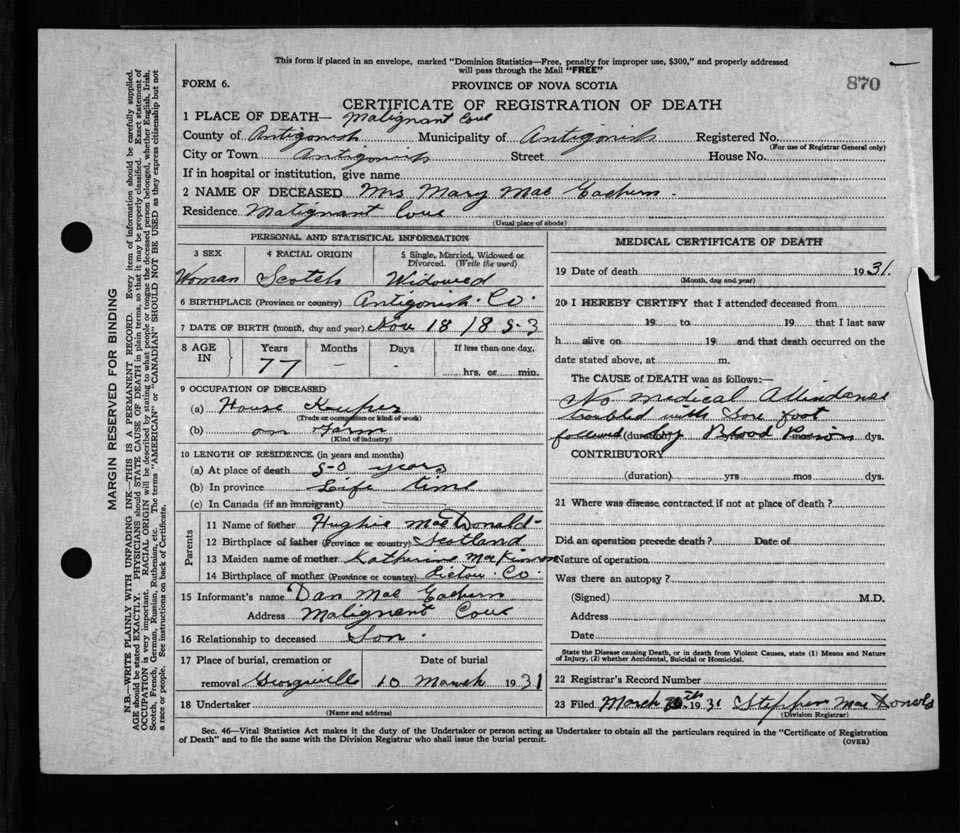 This form if placed in an envelope, marked "Dominion Statistics—Free, penalty for improper use, $300," and properly addressed
will pass through the Mail "FREE"
FORM 6.
PROVINCE OF NOVA SCOTIA
870
CERTIFICATE OF REGISTRATION OF DEATH
1 PLACE OF DEATH— Malignant Cove
County of Antigonish Municipality of Antigonish Registered No.
(For use of Registrar General only)
City or Town Antigonish Street House No.
If in hospital or institution, give name
2 NAME OF DECEASED Mrs Mary Mac Eachern
Residence Malignant Cove
(Usual place of abode)
PERSONAL AND STATISTICAL INFORMATION
3 SEX
Woman
4 RACIAL ORIGIN
Scotch
5 Single, Married, Widowed or
Divorced. (Write the word)
Widowed
6 BIRTHPLACE (Province or country) Antigonish Co.
7 DATE OF BIRTH (month, day and year) Nov 18 1853
8 AGE IN
Years Months Days If less than one day,
77 - - hrs. or min.
9 OCCUPATION OF DECEASED
(a) House Keeper
(Trade or occupation or kind of work)
(b) on Farm
(Kind of industry)
10 LENGTH OF RESIDENCE (in years and months)
(a) At place of death 50 years
(b) In province Life time
(c) In Canada (if an immigrant)
Parents
11 Name of father Hughie MacDonald
12 Birthplace of father (Province or country) Scotland
13 Maiden name of mother Katherine MacKinnon
14 Birthplace of mother (Province or country) Pictou Co
15 Informant's name Dan Mac Eachern
Address Malignant Cove
16 Relationship to deceased Son
17 Place of burial, cremation or Date of burial
removal Georgeville 10 March 1931
18 Undertaker
(Name and address)
MEDICAL CERTIFICATE OF DEATH
19 Date of death 1931.
(Month, day and year)
20 I HEREBY CERTIFY that I attended deceased from
19 to 19 that I last saw
h alive on 19 and that death occurred on the
date stated above, at m.
The CAUSE of DEATH was as follows:—
No medical Attendance
troubled with Sore foot
followed (duration) by Blood Poison dys.
CONTRIBUTORY
(duration) yrs mos dys.
21 Where was disease contracted if not at place of death?
Did an operation precede death? Date of
Nature of operation
Was there an autopsy?
(Signed) M.D.
Address
Date
State the Disease causing Death, or in death from Violent Causes, state (1) Means and Nature
of Injury, (2) whether Accidental, Suicidal or Homicidal.
22 Registrar's Record Number
23 Filed March th 1931 Stephen MacDonald
(Division Registrar)
Sec. 46—Vital Statistics Act makes it the duty of the Undertaker or person acting as Undertaker to obtain all the particulars required in the "Certificate of Registration
of Death" and to file the same with the Division Registrar who shall issue the burial permit.
(OVER)
MARGIN RESERVED FOR BINDING
N.B.—WRITE PLAINLY WITH UNFADING INK—THIS IS A PERMANENT RECORD. Every item of information should be carefully supplied.
AGE should be stated EXACTLY. PHYSICIANS should STATE CAUSE OF DEATH in plain terms, so that it may be properly classified. Exact statement of
OCCUPATION is very important. RACIAL ORIGIN will be described by stating to what people or tongue the deceased person belonged, whether English, Irish,
Scotch, French, German, Russian, Ruthenian, etc. The terms "AMERICAN" or "CANADIAN" SHOULD NOT BE USED as they express citizenship but not
a race or people. See instructions on back of Certificate.